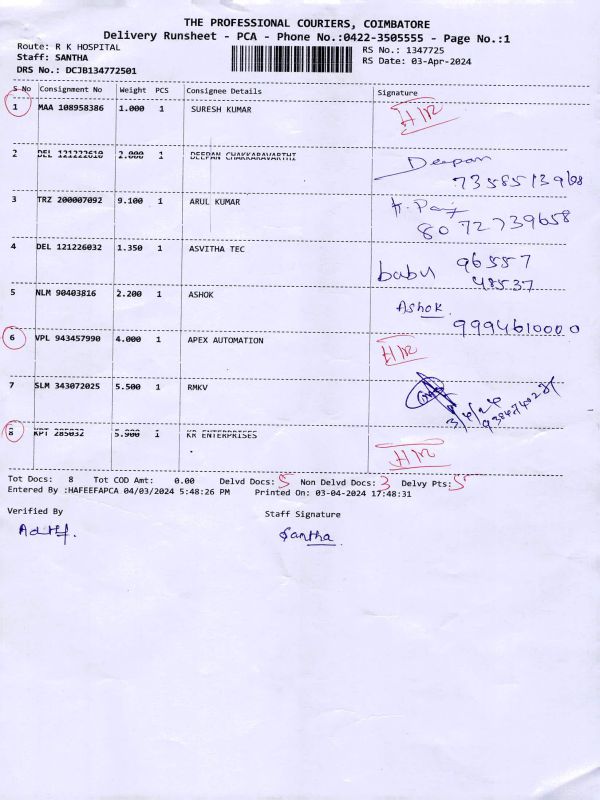 THE PROFESSIONAL COURIERS, COIMBATORE
Delivery Runsheet - PCA - Phone No.:0422-3505555 - Page No.:1
Route: R K HOSPITAL
RS No.: 1347725
Staff: SANTHA
RS Date: 03-Apr-2024
DRS No.: DCJB134772501
S No Consignment No Weight PCS Consignee Details Signature
1 MAA 108958386 1.000 1 SURESH KUMAR
2 DEL 121222610 2.000 1 DEEPAN CHAKKARAVARTHI Deepan
3 TRZ 200007092 9.100 1 ARUL KUMAR
8072739658
4 DEL 121226032 1.350 1 ASVITHA TEC babu 96557
48537
5 NLM 90403816 2.200 1 ASHOK Ashok
9994610000
6 VPL 943457990 4.000 1 APEX AUTOMATION
7 SLM 343072025 5.500 1 RMKV
3/4/24
8 KPT 285032 5.900 1 KR ENTERPRISES
Tot Docs: 8 Tot COD Amt: 0.00 Delvd Docs: 5 Non Delvd Docs: 3 Delvy Pts: 5
Entered By :HAFEEFAPCA 04/03/2024 5:48:26 PM Printed On: 03-04-2024 17:48:31
Verified By Staff Signature
Santha